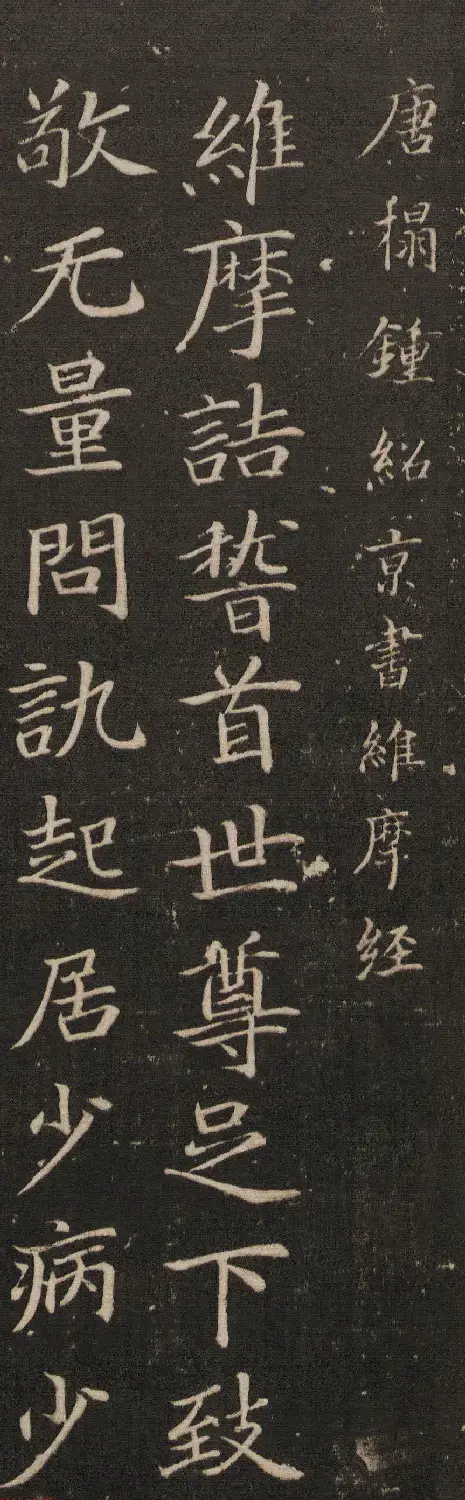 唐榻鍾紹京書維摩経
維摩詰誓首世尊足下致
敬无量問訊起居少病少